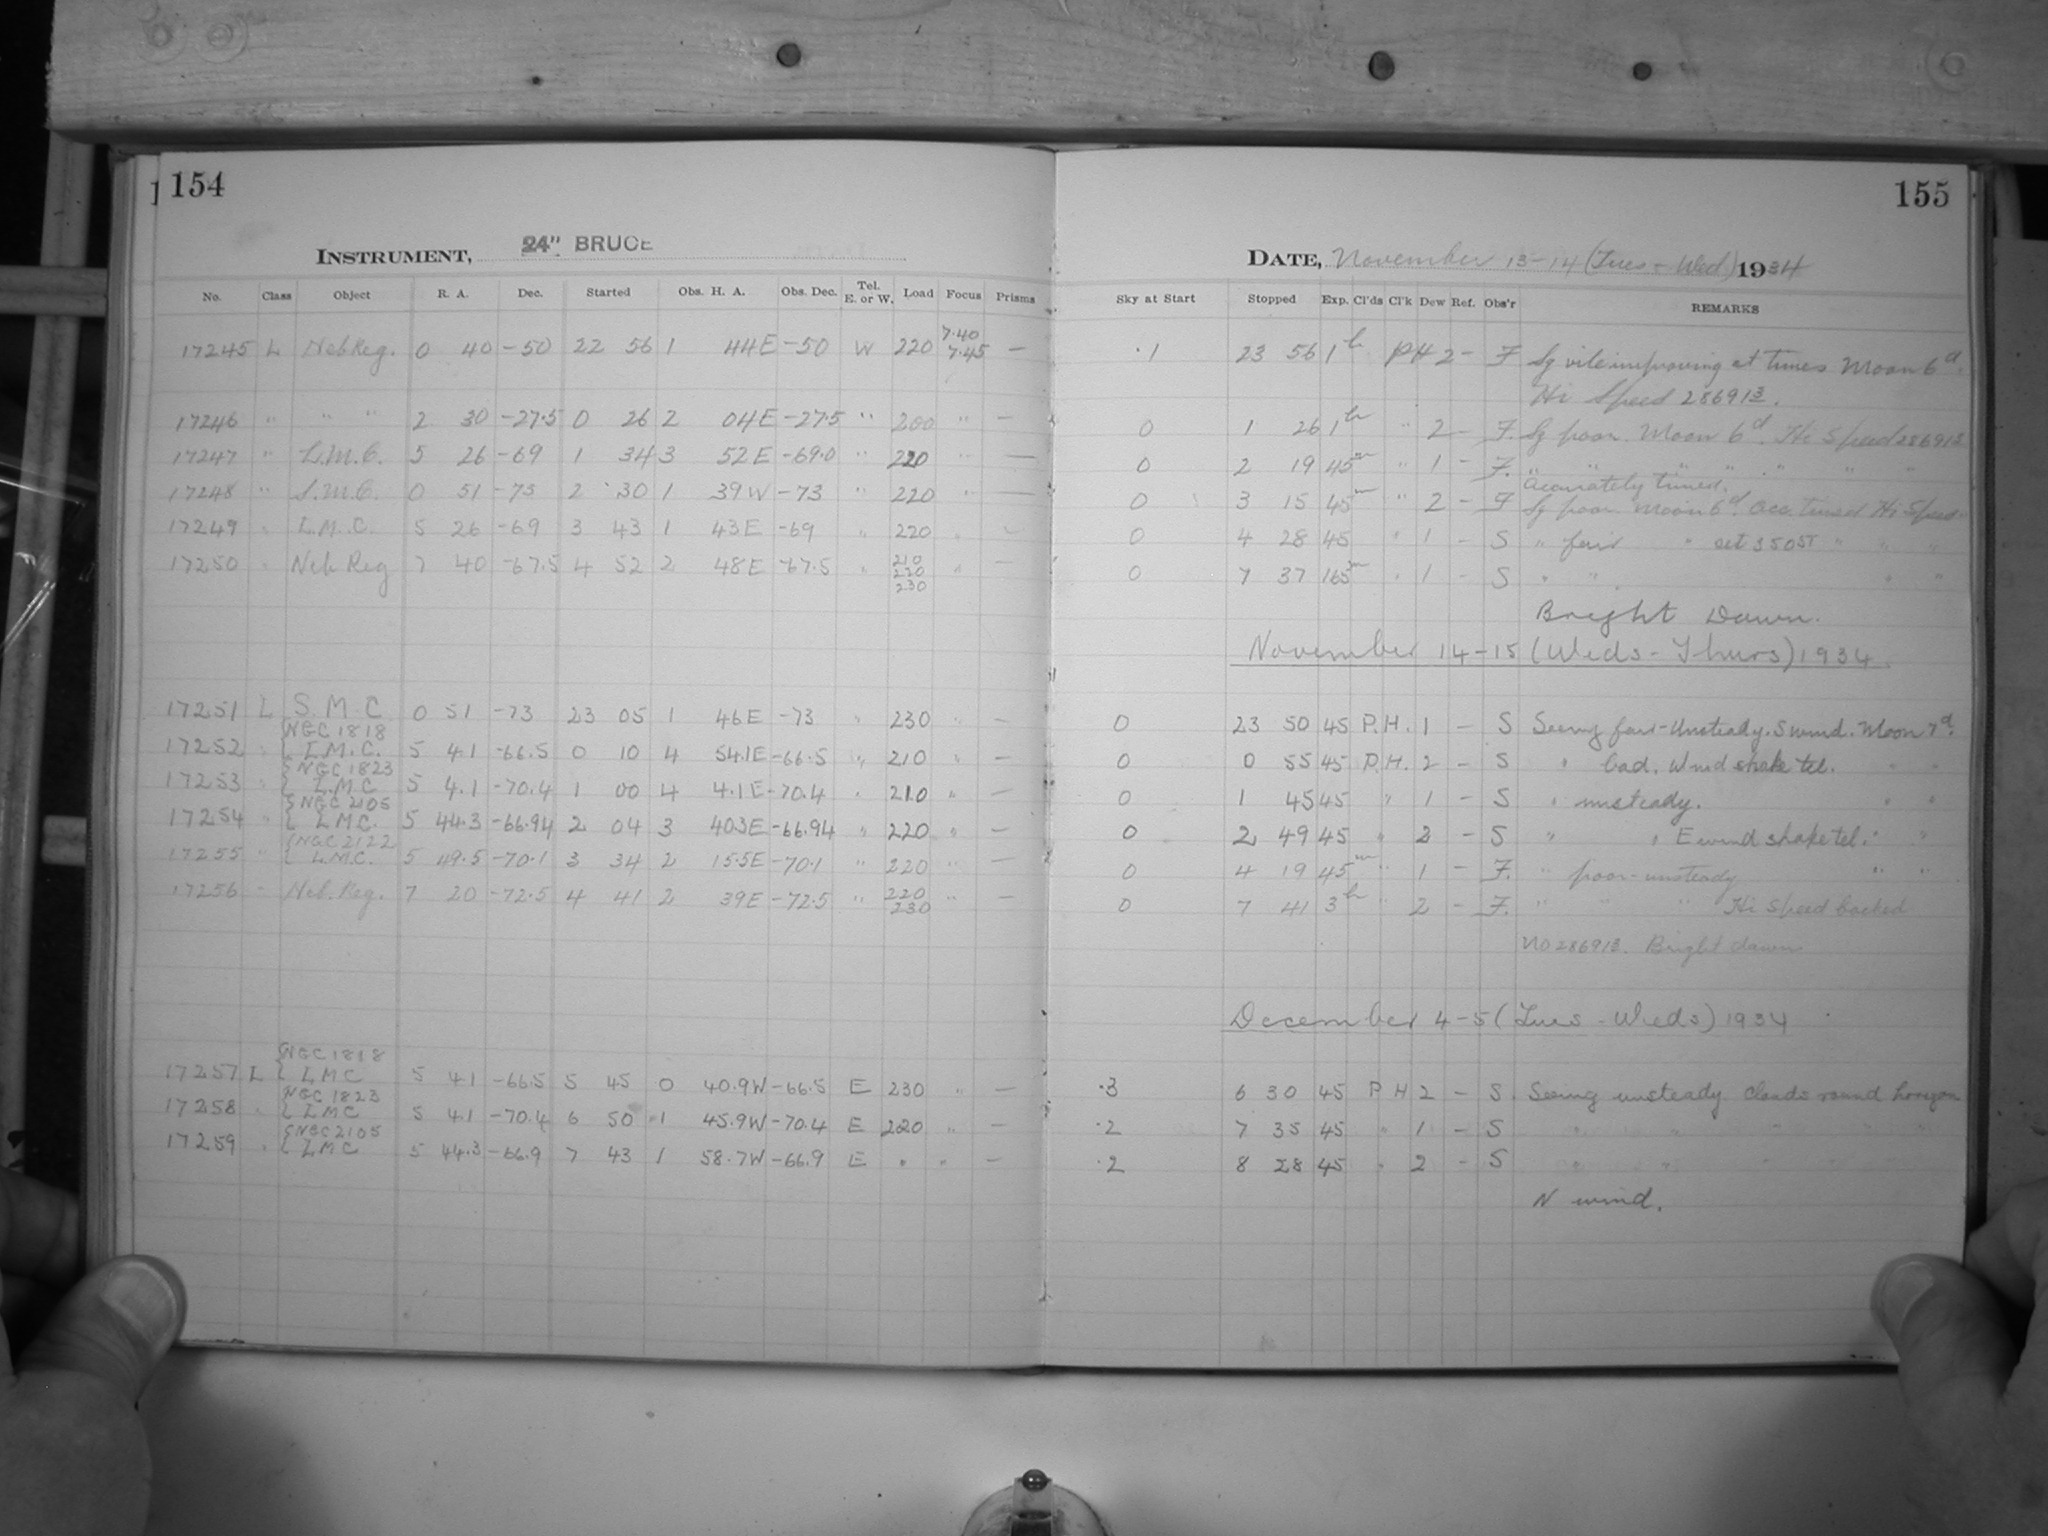 154
INSTRUMENT, 24" BRUCE
No. Class Object R. A. Dec. Started Obs. H. A. Obs. Dec. Tel. E. or W. Load Focus Prisms
17245 L Neb Reg. 0 40 -50 22 56 1 44E -50 W 220 7.40 7.45 —
17246 " " " 2 30 -27.5 0 26 2 04E -27.5 " 200 " —
17247 " L.M.C. 5 26 -69 1 34 3 52E -69.0 " 220 " —
17248 " S.M.C. 0 51 -73 2 30 1 39W -73 220 " —
17249 " L.M.C. 5 26 -69 3 43 1 43E -69 " 220 " —
17250 " Neb Reg 7 40 -67.5 4 52 2 48E -67.5 " 210 220 230 " —
17251 L S M C 0 51 -73 23 05 1 46E -73 " 230 " —
17252 " { NGC 1818 L.M.C. 5 4.1 -66.5 0 10 4 54.1E -66.5 " 210 " —
17253 " { NGC 1823 L.M.C 5 4.1 -70.4 1 00 4 4.1E -70.4 " 210 " —
17254 " { NGC 2105 LMC. 5 44.3 -66.94 2 04 3 40.3E -66.94 " 220 " —
17255 " { NGC 2122 L.M.C. 5 49.5 -70.1 3 34 2 15.5E -70.1 " 220 " —
17256 " Neb. Reg. 7 20 -72.5 4 41 2 39E -72.5 " 220 230 " —
17257 L { NGC 1818 LMC 5 4.1 -66.5 5 45 0 40.9W -66.5 E 230 " —
17258 " { NGC 1823 LMC 5 4.1 -70.4 6 50 1 45.9W -70.4 E 220 " —
17259 " { NGC 2105 LMC 5 44.3 -66.9 7 43 1 58.7W -66.9 E " " —
155
DATE, November 13-14 (Tues - Wed) 1934
Sky at Start Stopped Exp. Cl'ds Cl'k Dew Ref. Obs'r REMARKS
.1 23 56 1h PH 2 - F Sg vile improving at times Moon 6d.
Hi Speed 286913.
0 1 26 1h " 2 - F. Sg poor. Moon 6d. Hi Speed 286913
0 2 19 45m " 1 - F. " " " " " " "
Accurately timed.
0 3 15 45m " 2 - F Sg poor Moon 6d. Acc. timed Hi Speed
0 4 28 45 " 1 - S " fair " set 350ST " " "
0 7 37 165m " 1 - S " " " "
Bright Dawn.
November 14-15 (Weds - Thurs) 1934.
0 23 50 45 P.H. 1 - S Seeing fair - Unsteady. S wind. Moon 7d.
0 0 55 45 P.H. 2 - S " bad. Wind shake tel. " "
0 1 45 45 " 1 - S " unsteady. " "
0 2 49 45 " 2 - S " " E wind shake tel. " "
0 4 19 45m " 1 - F. " poor - unsteady " "
0 7 41 3h " 2 - F. " " " Hi Speed backed
No 286913. Bright dawn
December 4-5 (Tues - Weds) 1934
.3 6 30 45 P H 2 - S Seeing unsteady Clouds round horizon
.2 7 35 45 " 1 - S " " " " "
.2 8 28 45 " 2 - S " "
N wind.